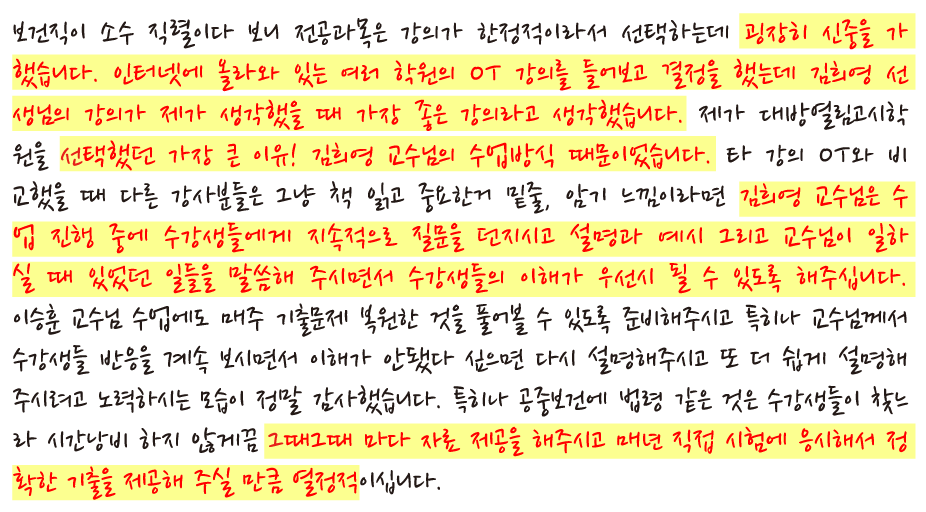 보건직이 소수 직렬이다 보니 전공과목은 강의가 한정적이라서 선택하는데 굉장히 신중을 가
했습니다. 인터넷에 올라와 있는 여러 학원의 OT 강의를 들어보고 결정을 했는데 김희영 선
생님의 강의가 제가 생각했을 때 가장 좋은 강의라고 생각했습니다. 제가 대방열림고시학
원을 선택했던 가장 큰 이유! 김희영 교수님의 수업방식 때문이었습니다. 타 강의 OT와 비
교했을 때 다른 강사분들은 그냥 책 읽고 중요한거 밑줄, 암기 느낌이라면 김희영 교수님은 수
업 진행 중에 수강생들에게 지속적으로 질문을 던지시고 설명과 예시 그리고 교수님이 일하
실 때 있었던 일들을 말씀해 주시면서 수강생들의 이해가 우선시 될 수 있도록 해주십니다.
이승훈 교수님 수업에도 매주 기출문제 복원한 것을 풀어볼 수 있도록 준비해주시고 특히나 교수님께서
수강생들 반응을 계속 보시면서 이해가 안됐다 싶으면 다시 설명해주시고 또 더 쉽게 설명해
주시려고 노력하시는 모습이 정말 감사했습니다. 특히나 공중보건에 법령 같은 것은 수강생들이 찾느
라 시간낭비 하지 않게끔 그때그때 마다 자료 제공을 해주시고 매년 직접 시험에 응시해서 정
확한 기출을 제공해 주실 만큼 열정적이십니다.